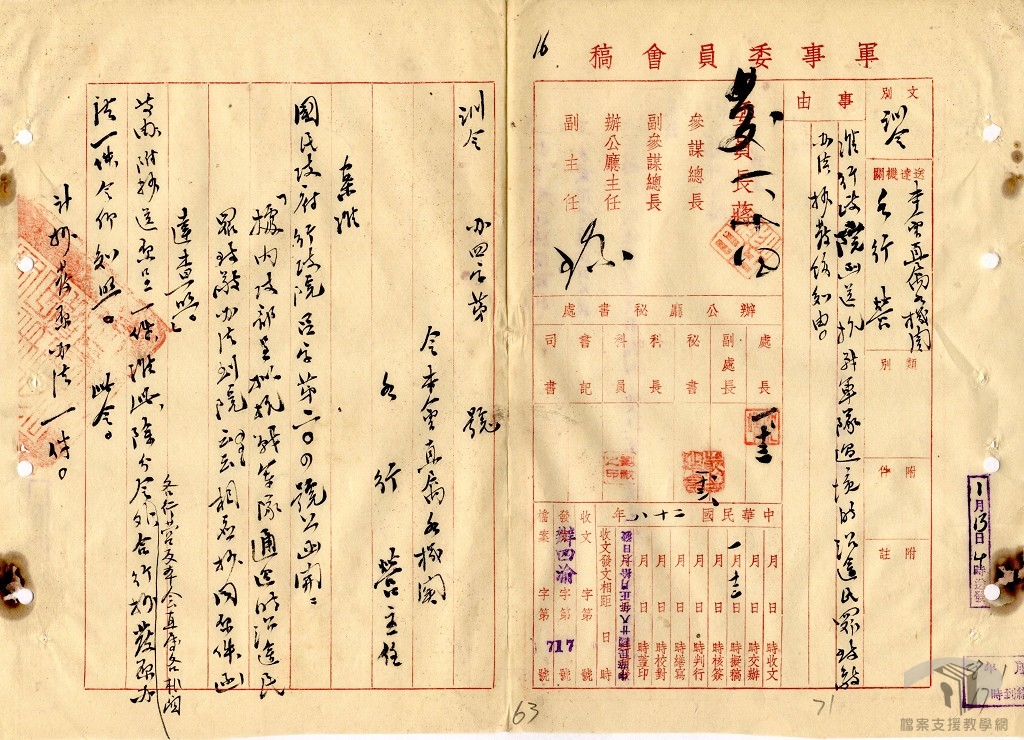 軍事委員會稿
文別
訓令
送達機關
本會直屬各機關
各行營
類別
附件
附註
事由
准行政院函送抗戰軍隊過境時沿途民眾致敬
辦法抄發飭知由。
委員長蔣
參謀總長
副參謀總長
辦公廳主任
副主任
辦公廳秘書處
處長
副處長
秘書
科長
科員
書記
司書
中華民國二十八年
月 日 時收文
月 日 時交辦
一月十三日 時擬稿
月 日 時核簽
月 日 時判行
月 日 時繕寫
月 日 時校對
月 日 時蓋印
收文發文相距 日 時
收文 字第 號
發文 辦四渝 字第 717 號
檔案 字第 號
16
71
63
訓令 辦四字第 號
令本會直屬各機關
各行營主任
案准
國民政府行政院呂字第二〇〇號公函開：
「據內政部呈擬抗戰軍隊過境時沿途民
眾致敬辦法到院云云相應抄同原件函
達查照。」
等由附抄送原呈一件准此，除分令各行營及本會直屬各機關外，合行抄發原辦
法一件令仰知照。此令。
計抄發原辦法一件。
檔案支援教學網